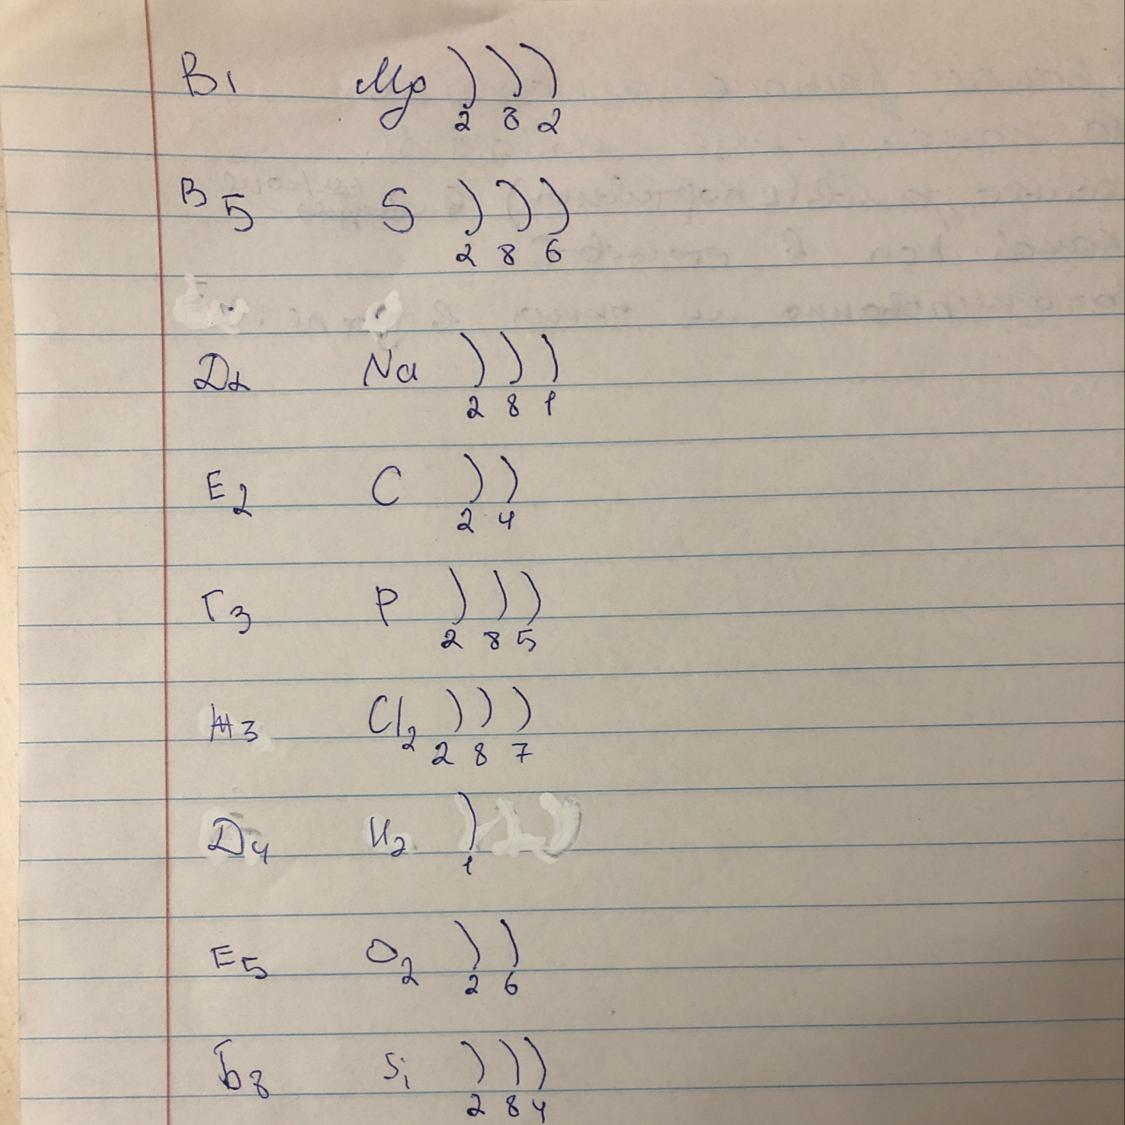 В1 Mg ) ) )
2 8 2
В5 S ) ) )
2 8 6
Д2 Na ) ) )
2 8 1
Е2 C ) )
2 4
Г3 P ) ) )
2 8 5
Ж3 Cl2 ) ) )
2 8 7
Д4 H2 )
1
Е5 O2 ) )
2 6
Б8 Si ) ) )
2 8 4